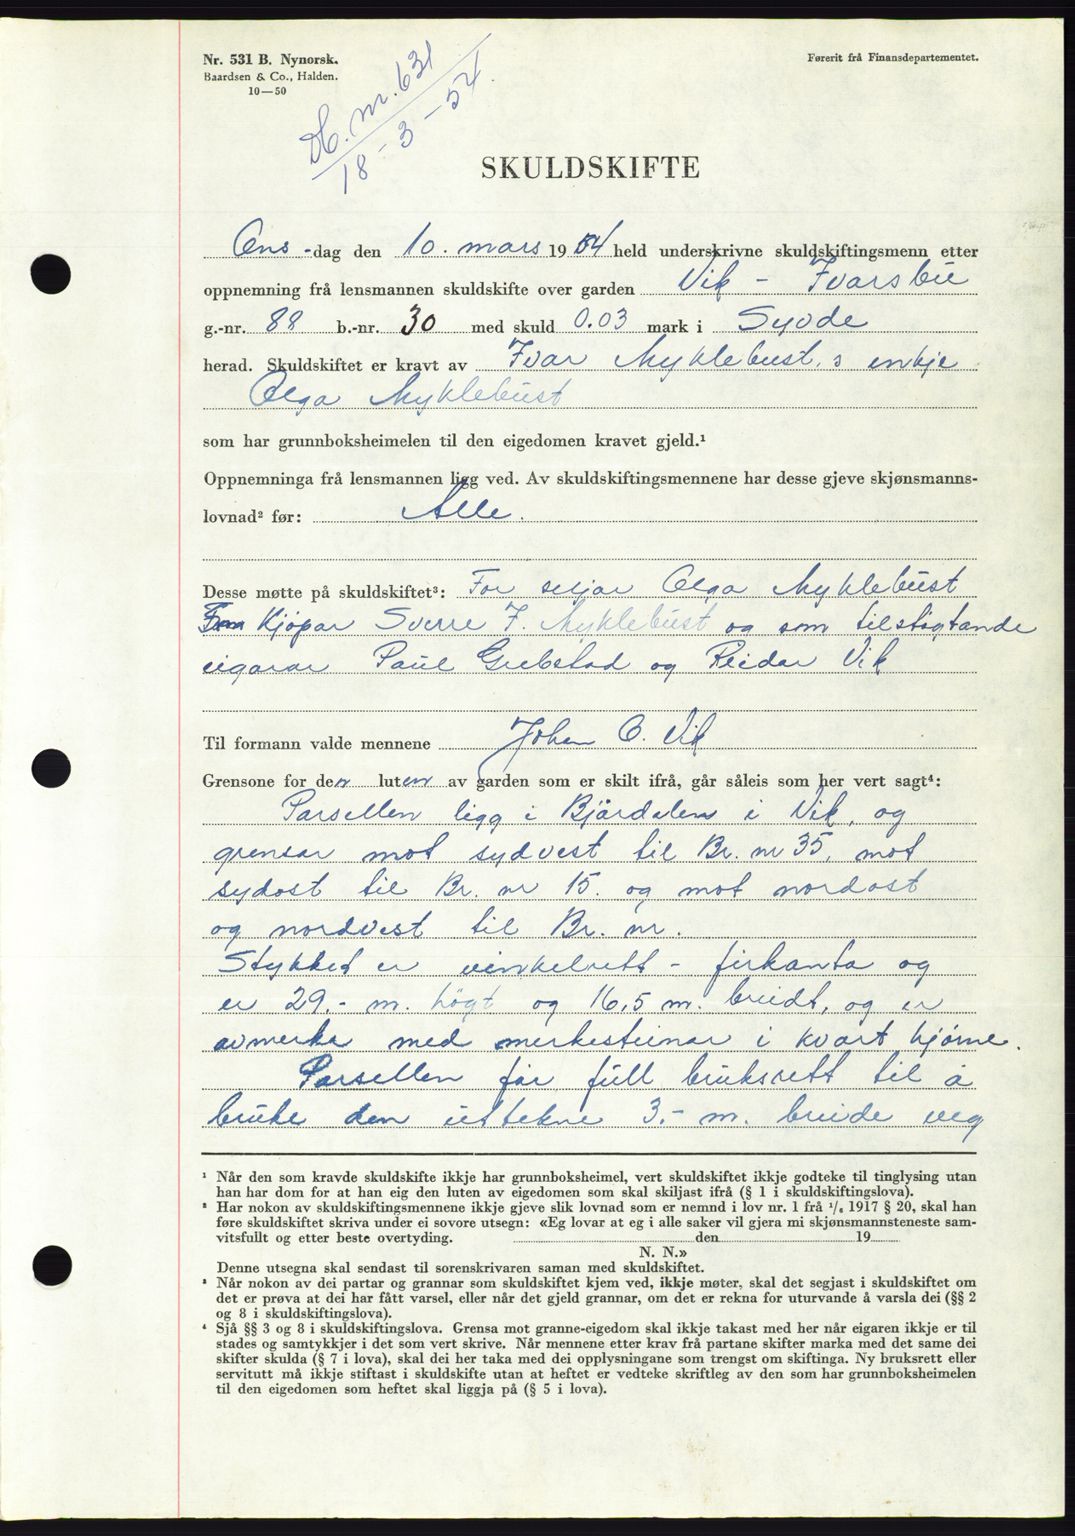 Nr. 531 B. Nynorsk.
Baardsen & Co., Halden.
10—50
Førerit frå Finansdepartementet.
Db. nr. 631
18-3-54.
SKULDSKIFTE
Ons-dag den 10. mars 1954 held underskrivne skuldskiftingsmenn etter
oppnemning frå lensmannen skuldskifte over garden Vik - Ivarsbu
g.-nr. 88 b.-nr. 30 med skuld 0.03 mark i Syvde
herad. Skuldskiftet er kravt av Ivar Myklebust,s enkje
Olga Myklebust
som har grunnboksheimelen til den eigedomen kravet gjeld.¹
Oppnemninga frå lensmannen ligg ved. Av skuldskiftingsmennene har desse gjeve skjønsmanns-
lovnad² før: Alle.
Desse møtte på skuldskiftet³: For seljar Olga Myklebust
Kjöpar Sverre I. Myklebust og som tilstøytande
eigarar Paul Grebstad og Reidar Vik
Til formann valde mennene Johan O. Vik
Grensone for den luten av garden som er skilt ifrå, går såleis som her vert sagt⁴:
Parsellen ligg i Bjärdalen i Vik, og
grensar mot sydvest til Br. nr 35, mot
sydost til Br. nr 15. og mot nordost
og nordvest til Br. nr.
Stykket er vinkelrett - firkanta og
er 29.- m. högt og 16,5 m. breidt, og er
avmerka med merkesteinar i kvart hjørne.
Parsellen får full bruksrett til å
bruke den uttekne 3.- m. breide veg
¹ Når den som kravde skuldskifte ikkje har grunnboksheimel, vert skuldskiftet ikkje godteke til tinglysing utan
han har dom for at han eig den luten av eigedomen som skal skiljast ifrå (§ 1 i skuldskiftingslova).
² Har nokon av skuldskiftingsmennene ikkje gjeve slik lovnad som er nemnd i lov nr. 1 frå 1/6 1917 § 20, skal han
føre skuldskiftet skriva under ei sovore utsegn: «Eg lovar at eg i alle saker vil gjera mi skjønsmannsteneste sam-
vitsfullt og etter beste overtyding. den 19
N. N.»
Denne utsegna skal sendast til sorenskrivaren saman med skuldskiftet.
³ Når nokon av dei partar og grannar som skuldskiftet kjem ved, ikkje møter, skal det segjast i skuldskiftet om
det er prøva at dei har fått varsel, eller når det gjeld grannar, om det er rekna for uturvande å varsla dei (§§ 2
og 8 i skuldskiftingslova).
⁴ Sjå §§ 3 og 8 i skuldskiftingslova. Grensa mot granne-eigedom skal ikkje takast med her når eigaren ikkje er til
stades og samtykkjer i det som vert skrive. Når mennene etter krav frå partane skifter marka med det same dei
skifter skulda (§ 7 i lova), skal dei her taka med dei opplysningane som trengst om skiftinga. Ny bruksrett eller
servitutt må ikkje stiftast i skuldskifte utan at heftet er vedteke skriftleg av den som har grunnboksheimelen
til den eigedomen som heftet skal liggja på (§ 5 i lova).